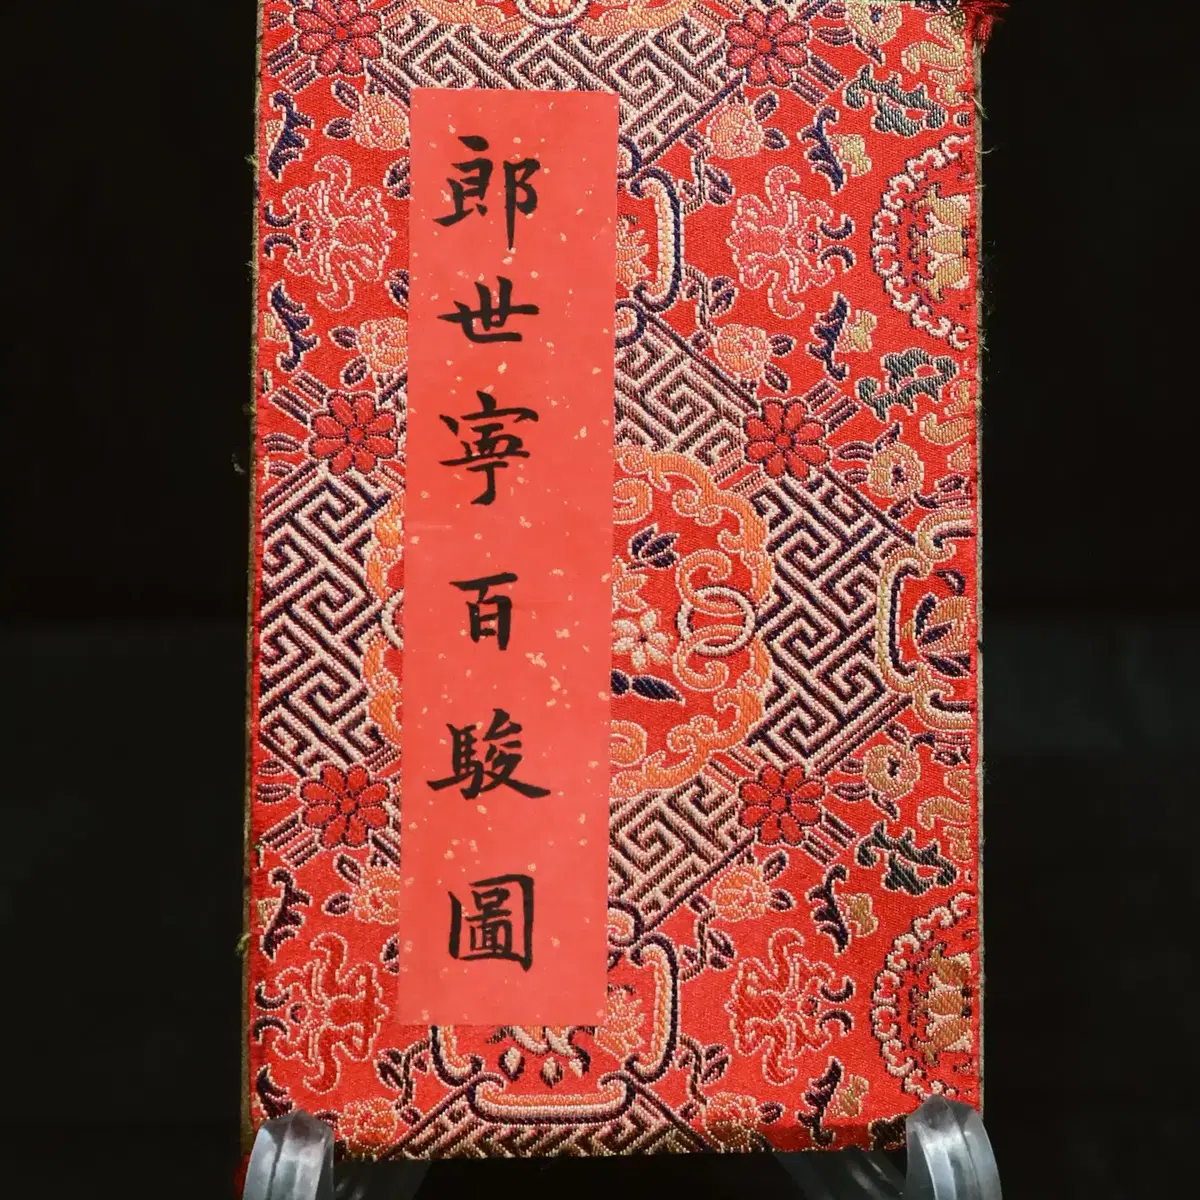 郎世寧百駿圖